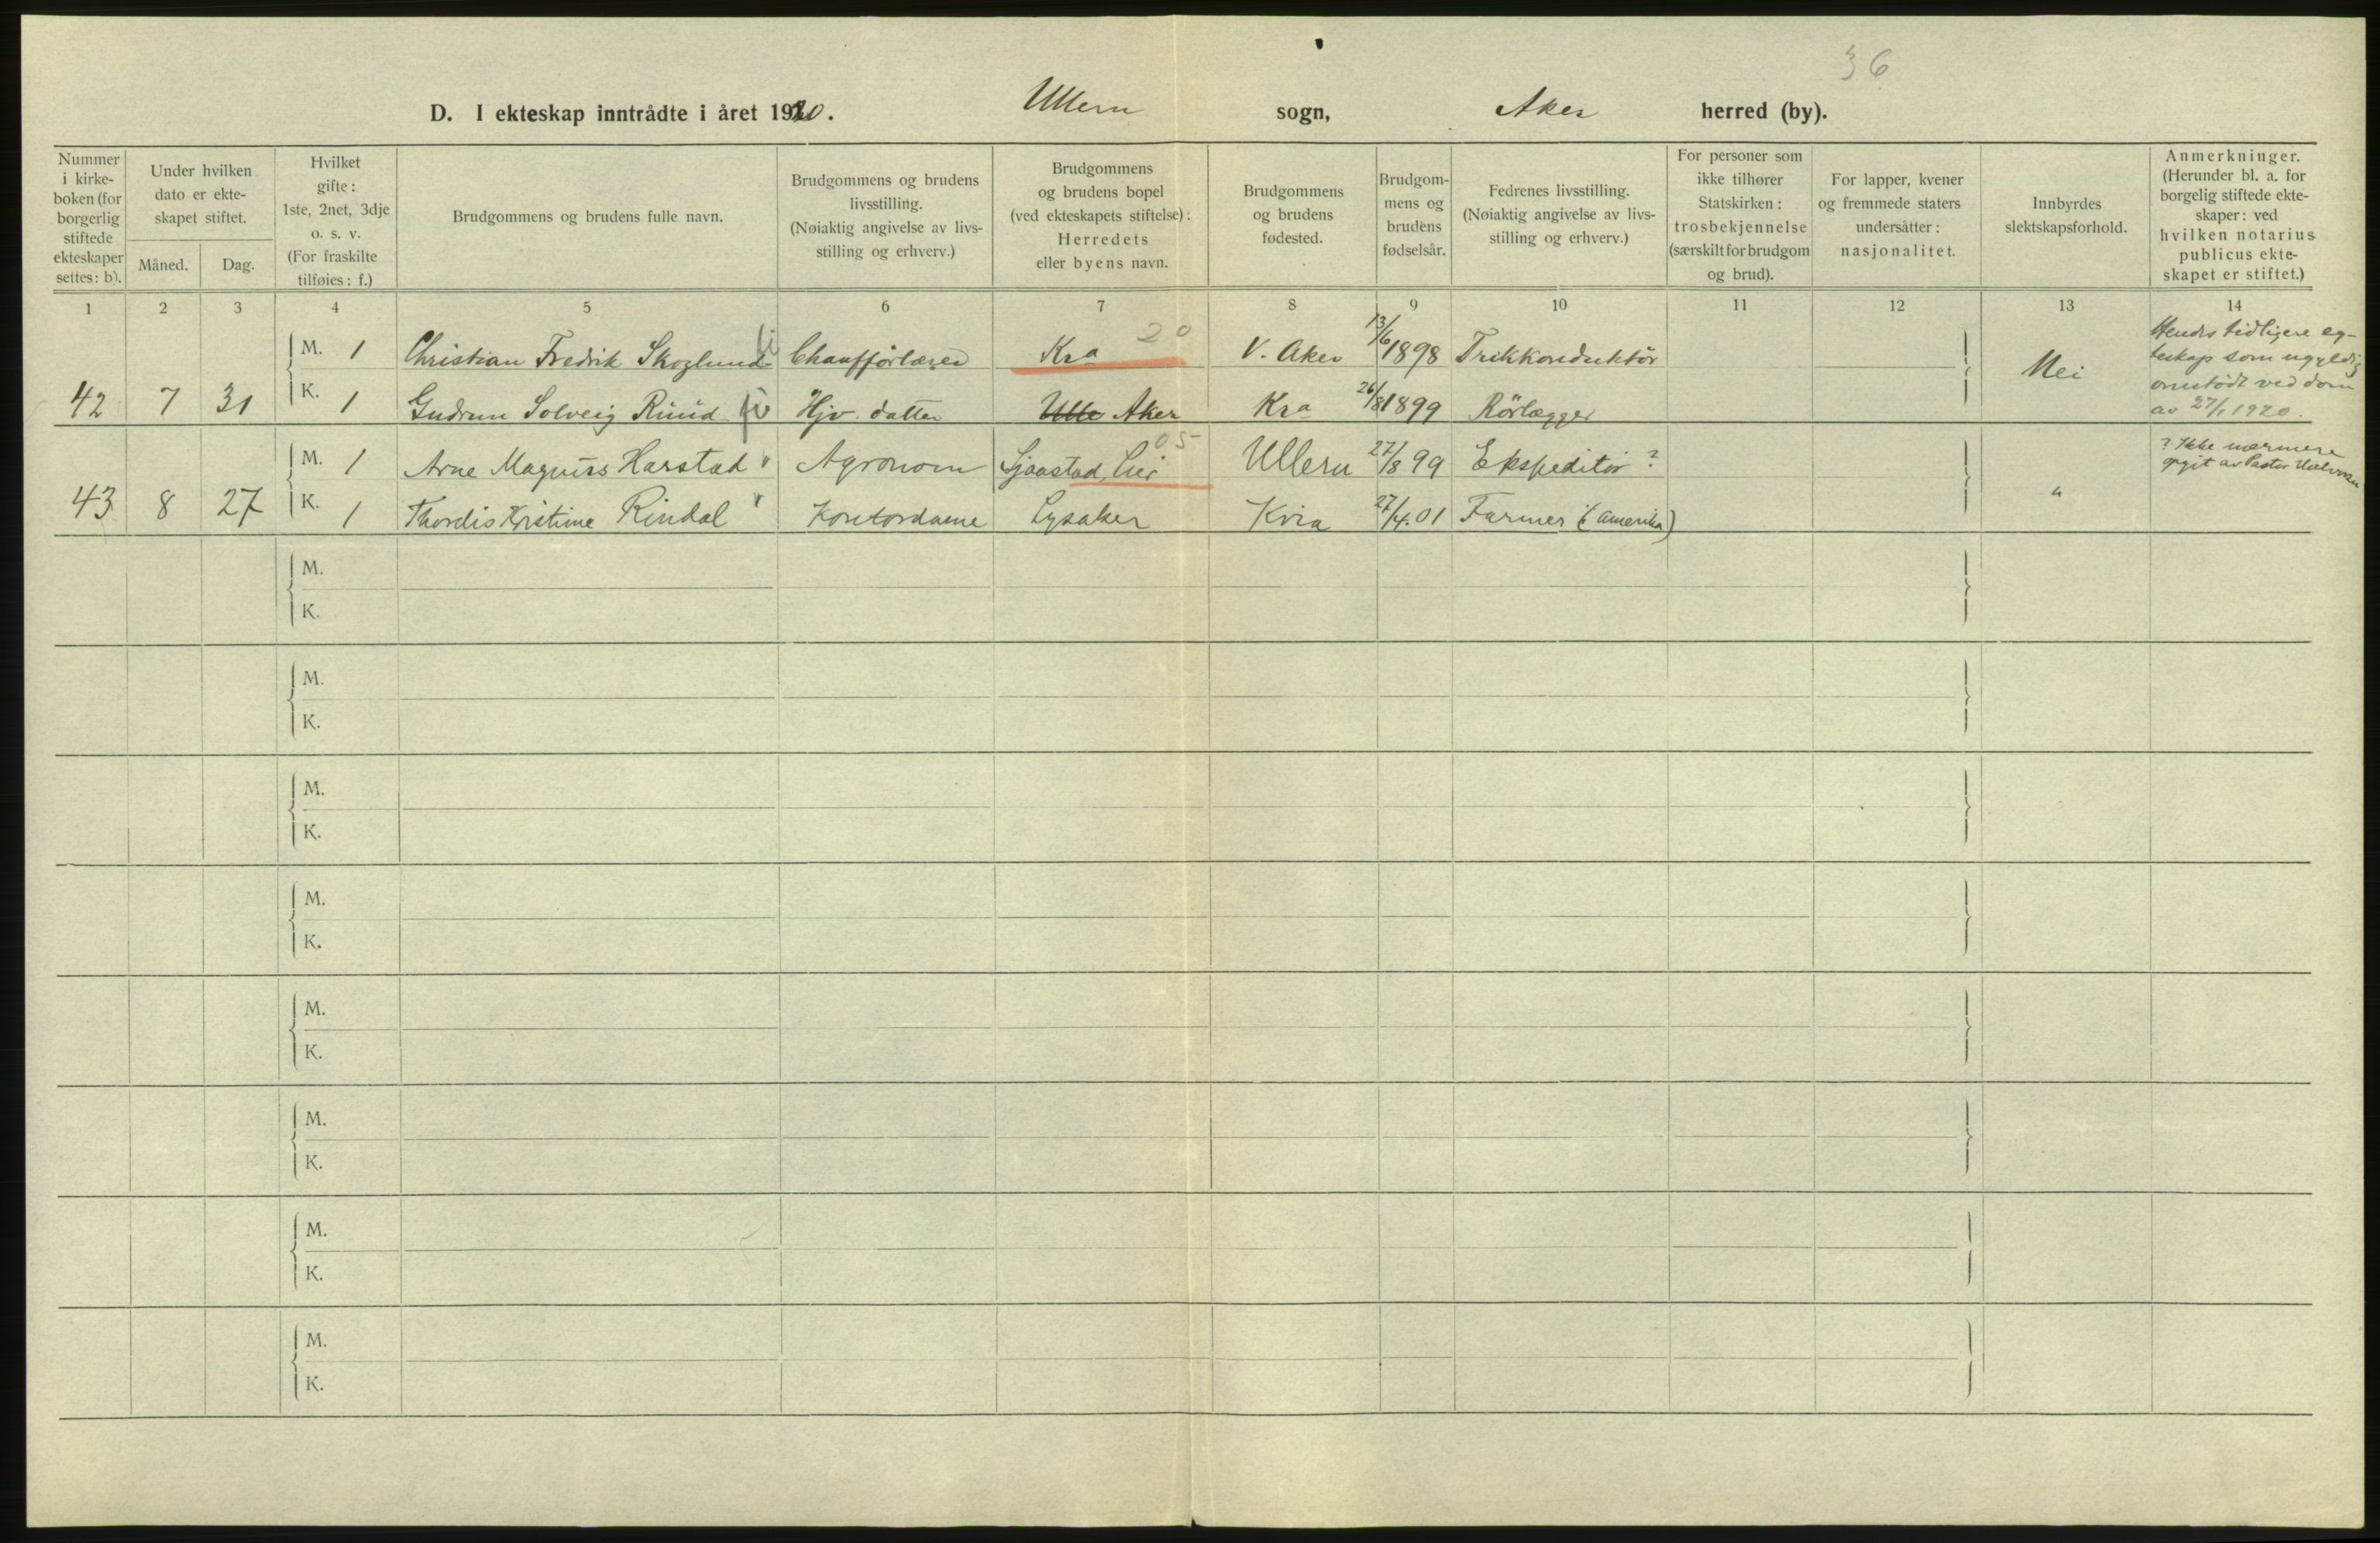 36
D. I ekteskap inntrådte i året 1920. Ullern sogn, Aker herred (by).
Nummer
i kirke-
boken (for
borgerlig
stiftede
ekteskaper
settes: b).
Under hvilken
dato er ekte-
skapet stiftet.
Måned. Dag.
Hvilket
gifte:
1ste, 2net, 3dje
o. s. v.
(For fraskilte
tilføies: f.)
Brudgommens og brudens fulle navn.
Brudgommens og brudens
livsstilling.
(Nøiaktig angivelse av livs-
stilling og erhverv.)
Brudgommens
og brudens bopel
(ved ekteskapets stiftelse):
Herredets
eller byens navn.
Brudgommens
og brudens
fødested.
Brudgom-
mens og
brudens
fødselsår.
Fedrenes livsstilling.
(Nøiaktig angivelse av livs-
stilling og erhverv.)
For personer som
ikke tilhører
Statskirken:
trosbekjennelse
(særskilt for brudgom
og brud).
For lapper, kvener
og fremmede staters
undersåtter:
nasjonalitet.
Innbyrdes
slektskapsforhold.
Anmerkninger.
(Herunder bl. a. for
borgelig stiftede ekte-
skaper: ved
hvilken notarius
publicus ekte-
skapet er stiftet.)
1 2 3 4 5 6 7 8 9 10 11 12 13 14
M. 1 Christian Fredrik Skoglund Chaufförlærer Kra 20 V. Aker 13/6 1898 Trikkonduktör
42 7 31 K. 1 Gudrun Solveig Ruud Hjv. datter Ulle Aker Kra 26/8 1899 Rörlægger Nei
Hendes tidligere eg-
teskap som ugyldig
omstödt ved dom
av 27/1 1920.
M. 1 Arne Magnus Harstad Agronom Sjaastad, Lier 05 Ullern 27/8 99 Ekspeditör ?
43 8 27 K. 1 Thordis Kristine Rindal Kontordame Lysaker Kria 27/4. 01 Farmer (Amerika) "
? Ikke nærmere
opgit av Pastor
M.
K.
M.
K.
M.
K.
M.
K.
M.
K.
M.
K.
M.
K.
M.
K.